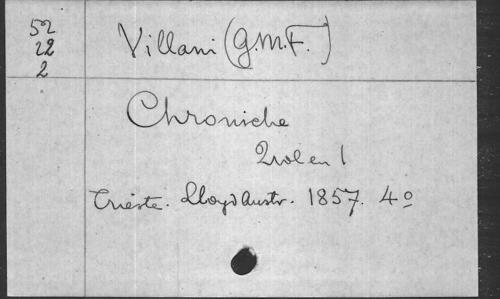 52
22
2
Villani (G.M.F.)
Chroniche
2 vol en 1
Trieste. Lloyd Austr. 1857. 4º